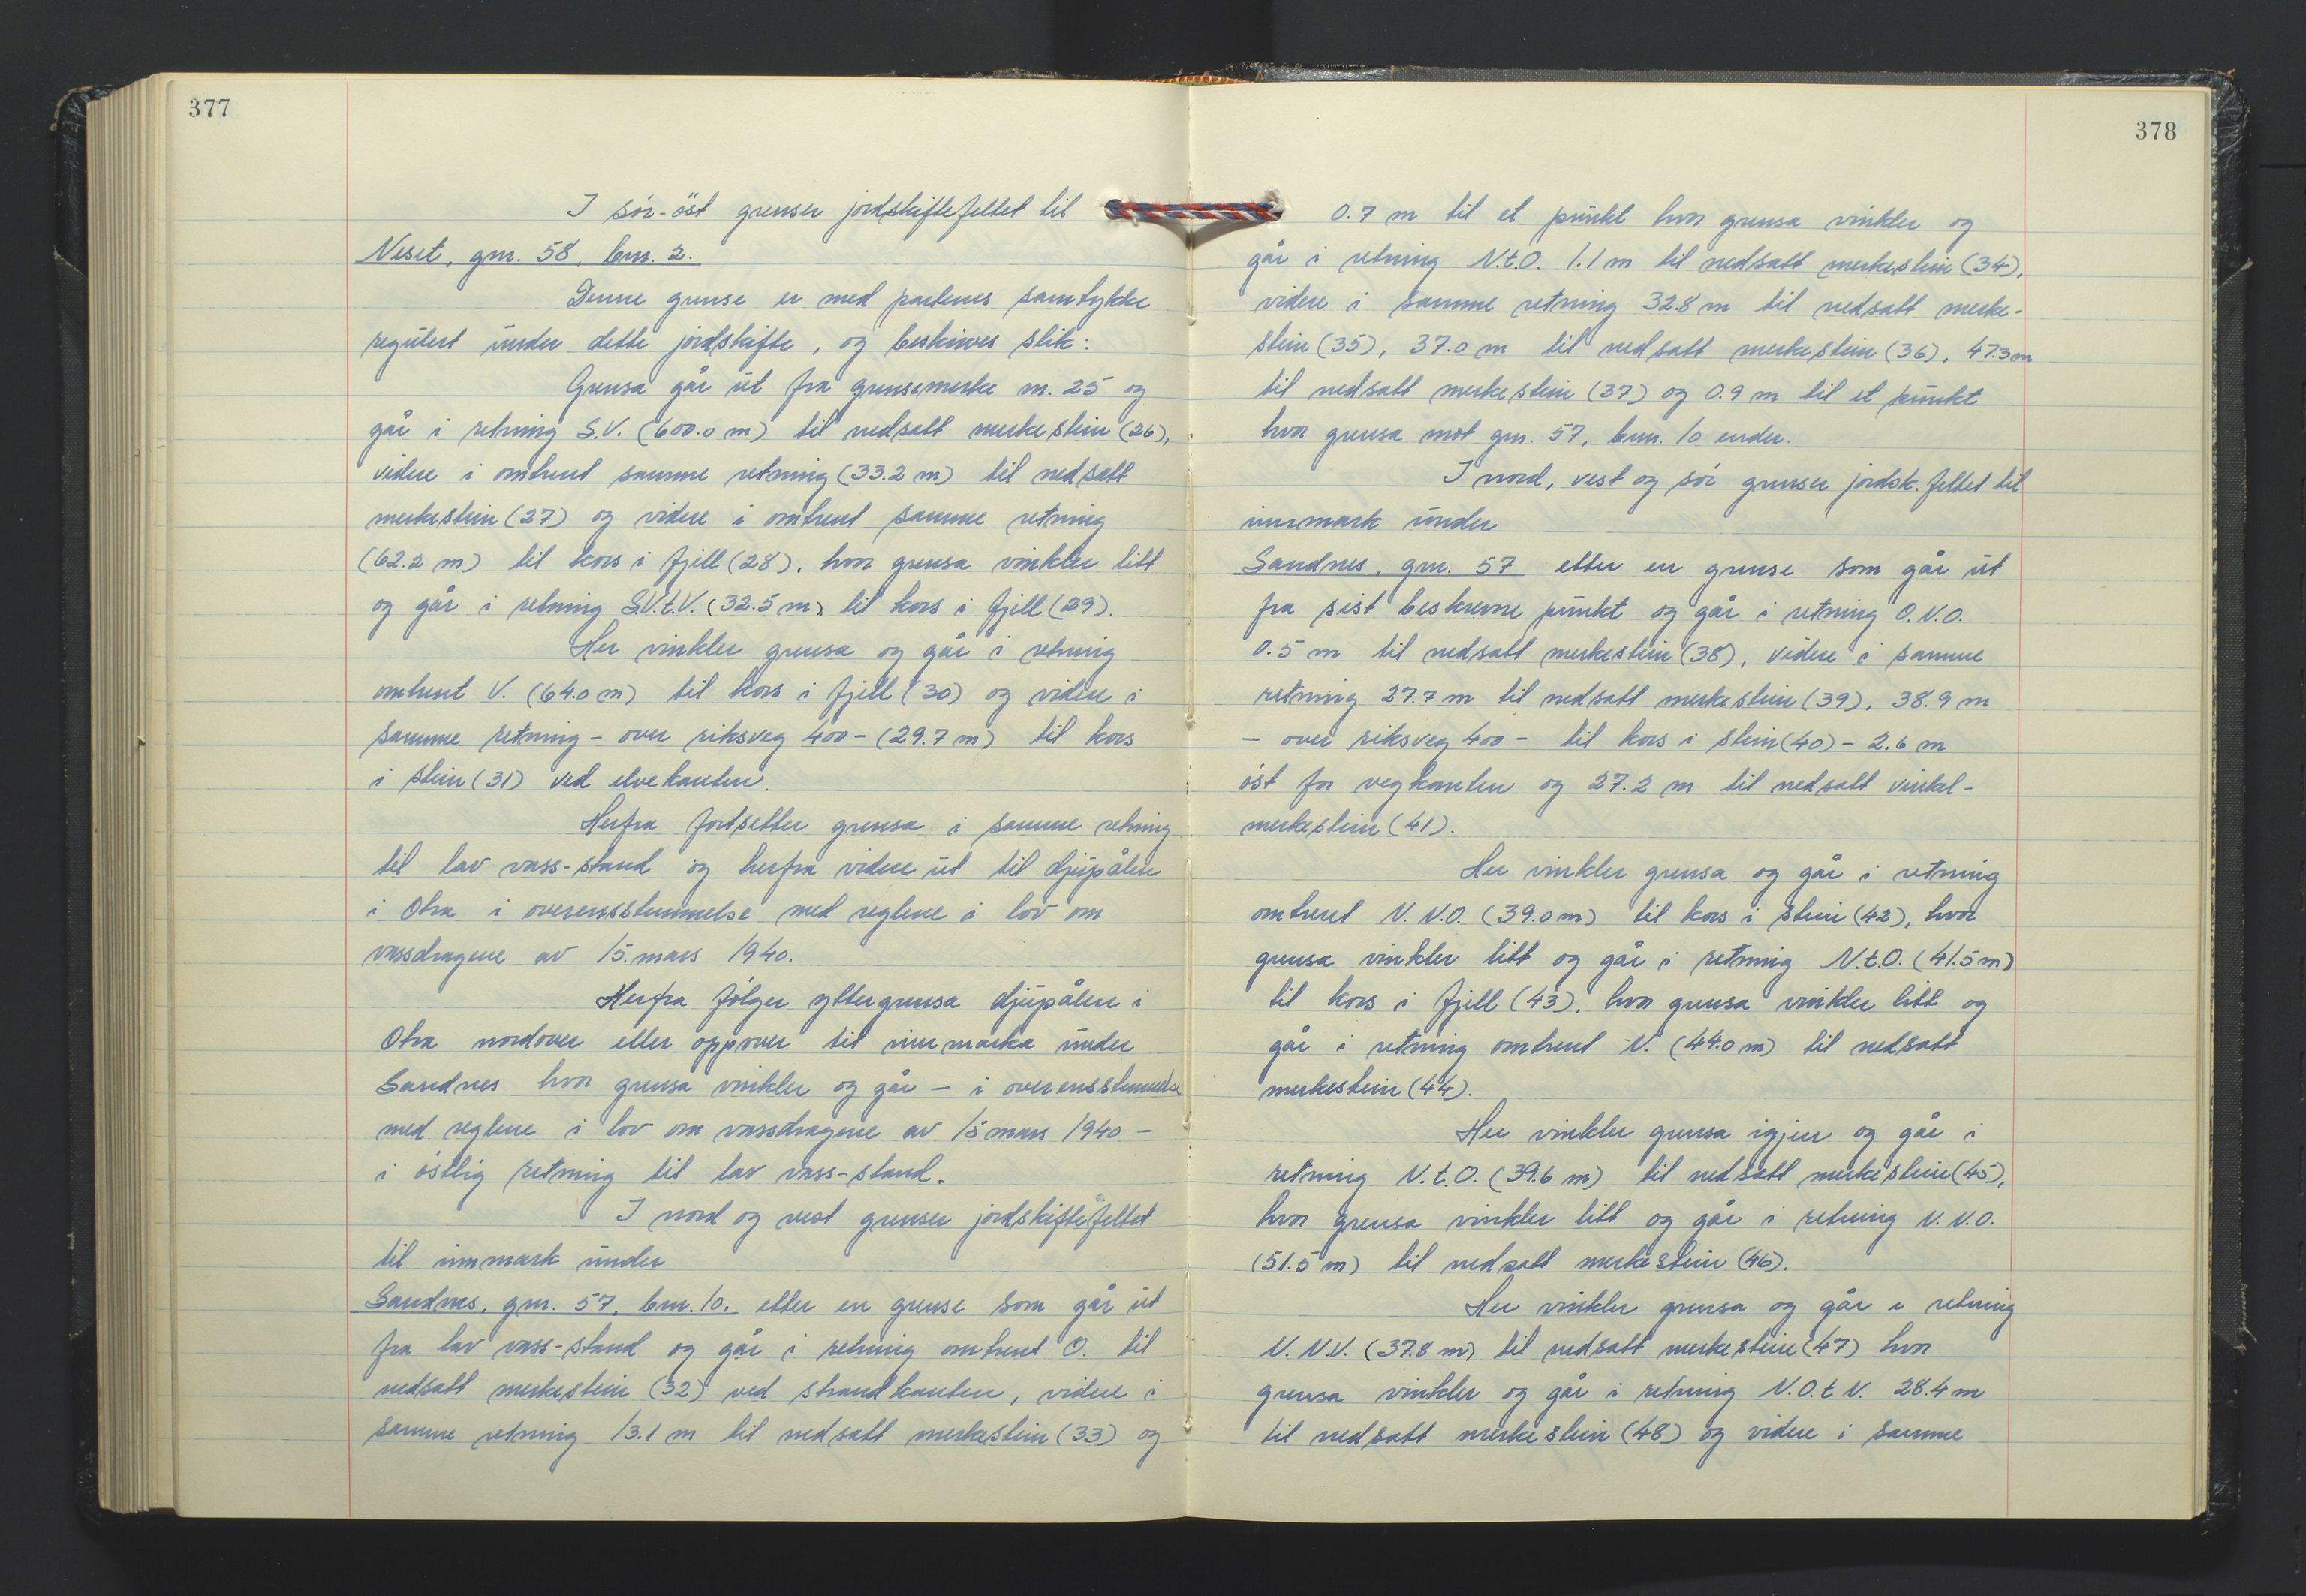 377
I sør-øst grenser jordskiftefeltet til
Neset, gnr. 58, bnr. 2.
Denne grense er med partenes samtykke
regulert under dette jordskifte, og beskrives slik:
Grensa går ut fra grensemerke nr. 25 og
går i retning S.V. (600.0 m) til nedsatt merkestein (26),
videre i omtrent samme retning (33.2 m) til nedsatt
merkestein (27) og videre i omtrent samme retning
(62.2 m) til kors i fjell (28), hvor grensa vinkler litt
og går i retning S.V.t.V. (32.5 m) til kors i fjell (29).
Her vinkler grensa og går i retning
omtrent V. (64.0 m) til kors i fjell (30) og videre i
samme retning - over riksveg 400 - (29.7 m) til kors
i stein (31) ved elvekanten.
Herfra fortsetter grensa i samme retning
til lav vass-stand og herfra videre ut til djupålen
i Otra i overensstemmelse med reglene i lov om
vassdragene av 15. mars 1940.
Herfra følger yttergrensa djupålen i
Otra nordover eller oppover til innmarka under
Sandnes hvor grensa vinkler og går - i overensstemmelse
med reglene i lov om vassdragene av 15 mars 1940 -
i østlig retning til lav vass-stand.
I nord og vest grenser jordskiftefeltet
til innmark under
Sandnes, gnr. 57, bnr. 10, etter en grense som går ut
fra lav vass-stand og går i retning omtrent O. til
nedsatt merkestein (32) ved strandkanten, videre i
samme retning 13.1 m til nedsatt merkestein (33) og
378
0.7 m til et punkt hvor grensa vinkler og
går i retning N.t.O. 1.1 m til nedsatt merkestein (34),
videre i samme retning 32.8 m til nedsatt merke-
stein (35), 37.0 m til nedsatt merkestein (36), 47.3 m
til nedsatt merkestein (37) og 0.9 m til et punkt
hvor grensa mot gnr. 57, bnr. 10 ender.
I nord, vest og sør grenser jordsk. feltet til
innmark under
Sandnes, gnr. 57 etter en grense som går ut
fra sist beskrevne punkt og går i retning O.N.O.
0.5 m til nedsatt merkestein (38), videre i samme
retning 27.7 m til nedsatt merkestein (39), 38.9 m
- over riksveg 400 - til kors i stein (40) - 2.6 m
øst for vegkanten og 27.2 m til nedsatt vinkel-
merkestein (41).
Her vinkler grensa og går i retning
omtrent N.N.O. (39.0 m) til kors i stein (42), hvor
grensa vinkler litt og går i retning N.t.O. (41.5 m)
til kors i fjell (43), hvor grensa vinkler litt og
går i retning omtrent N. (44.0 m) til nedsatt
merkestein (44).
Her vinkler grensa igjen og går i
retning N.t.O. (39.6 m) til nedsatt merkestein (45),
hvor grensa vinkler litt og går i retning N.N.O.
(51.5 m) til nedsatt merkestein (46).
Her vinkler grensa og går i retning
N.N.V. (37.8 m) til nedsatt merkestein (47) hvor
grensa vinkler og går i retning N.O.t.N. 28.4 m
til nedsatt merkestein (48) og videre i samme